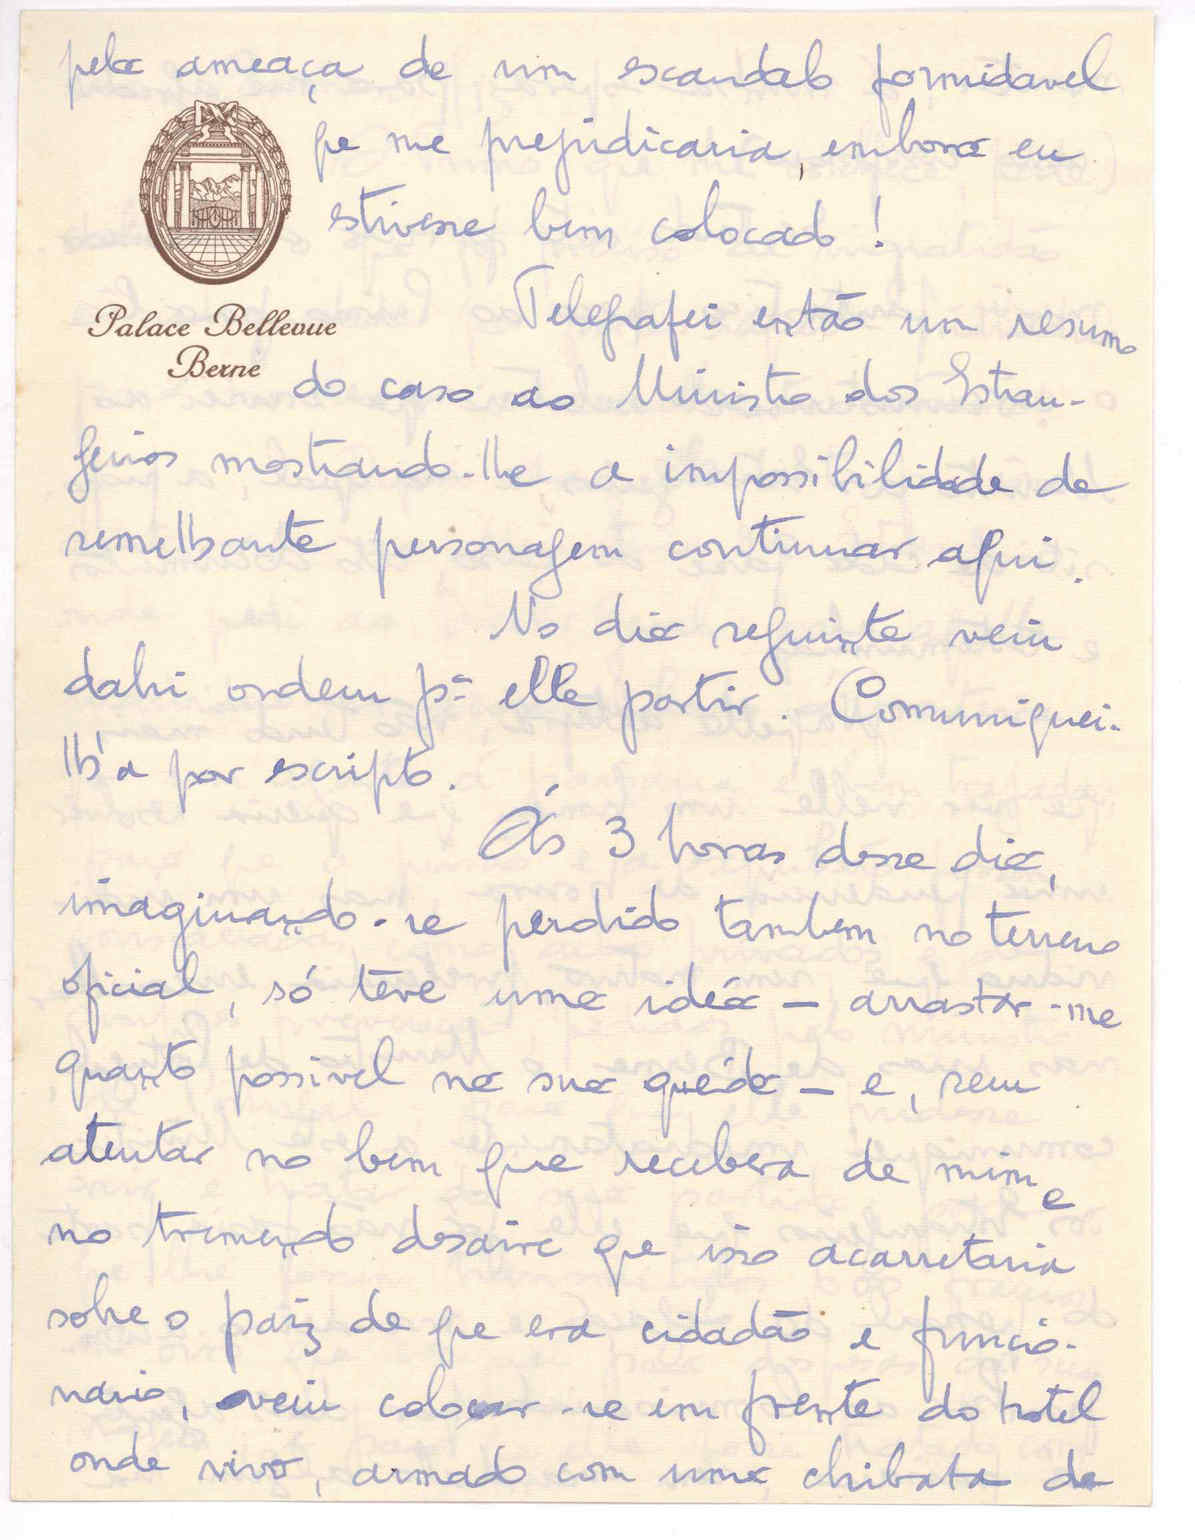 pela ameaça de um escandalo formidavel
que me prejudicaria, embora eu
estivesse bem colocado!
Palace Bellevue
Berne
Telegrafei então um resumo
do caso ao Ministro dos Estran-
geiros mostrando-lhe a impossibilidade de
semelhante personagem continuar aqui.
No dia seguinte veiu
dahi ordem pª elle partir. Comuniquei-
lh'a por escripto.
Às 3 horas desse dia,
imaginando-se perdido tambem no terreno
oficial, só teve uma idéa – arrastar-me
quanto possivel na sua quéda – e, sem
atentar no bem que recebera de mim e
no tremendo desaire que isso acarretaria
sobre o paiz de que era cidadão e funcio-
nario, veiu colocar-se em frente do hotel
onde vivo, armado com uma chibata de